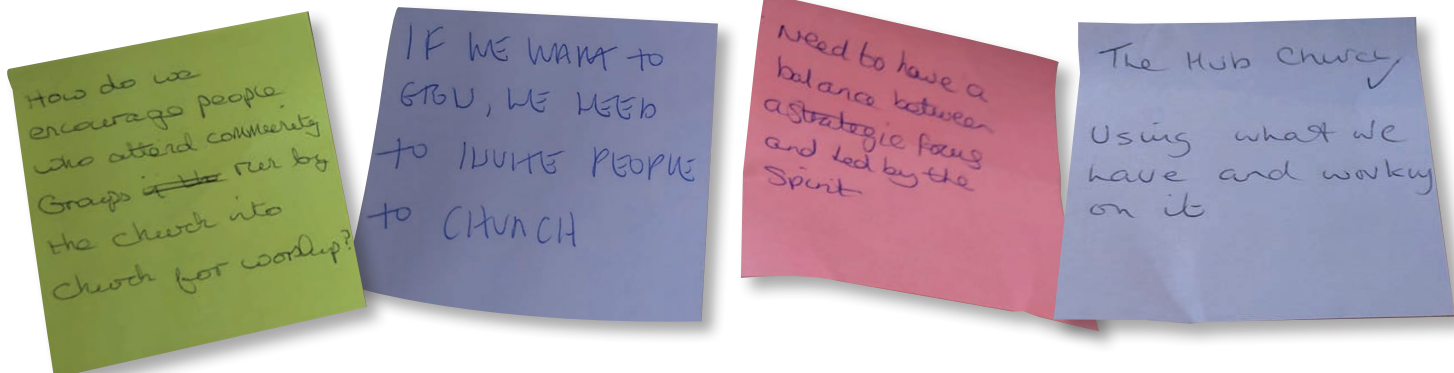 How do we
encourage people
who attend community
Groups run by
the church into
church for worship?
IF WE WANT TO
GROW, WE NEED
TO INVITE PEOPLE
TO CHURCH
Need to have a
balance between
a strategic focus
and led by the
Spirit
The Hub Church
Using what we
have and working
on it